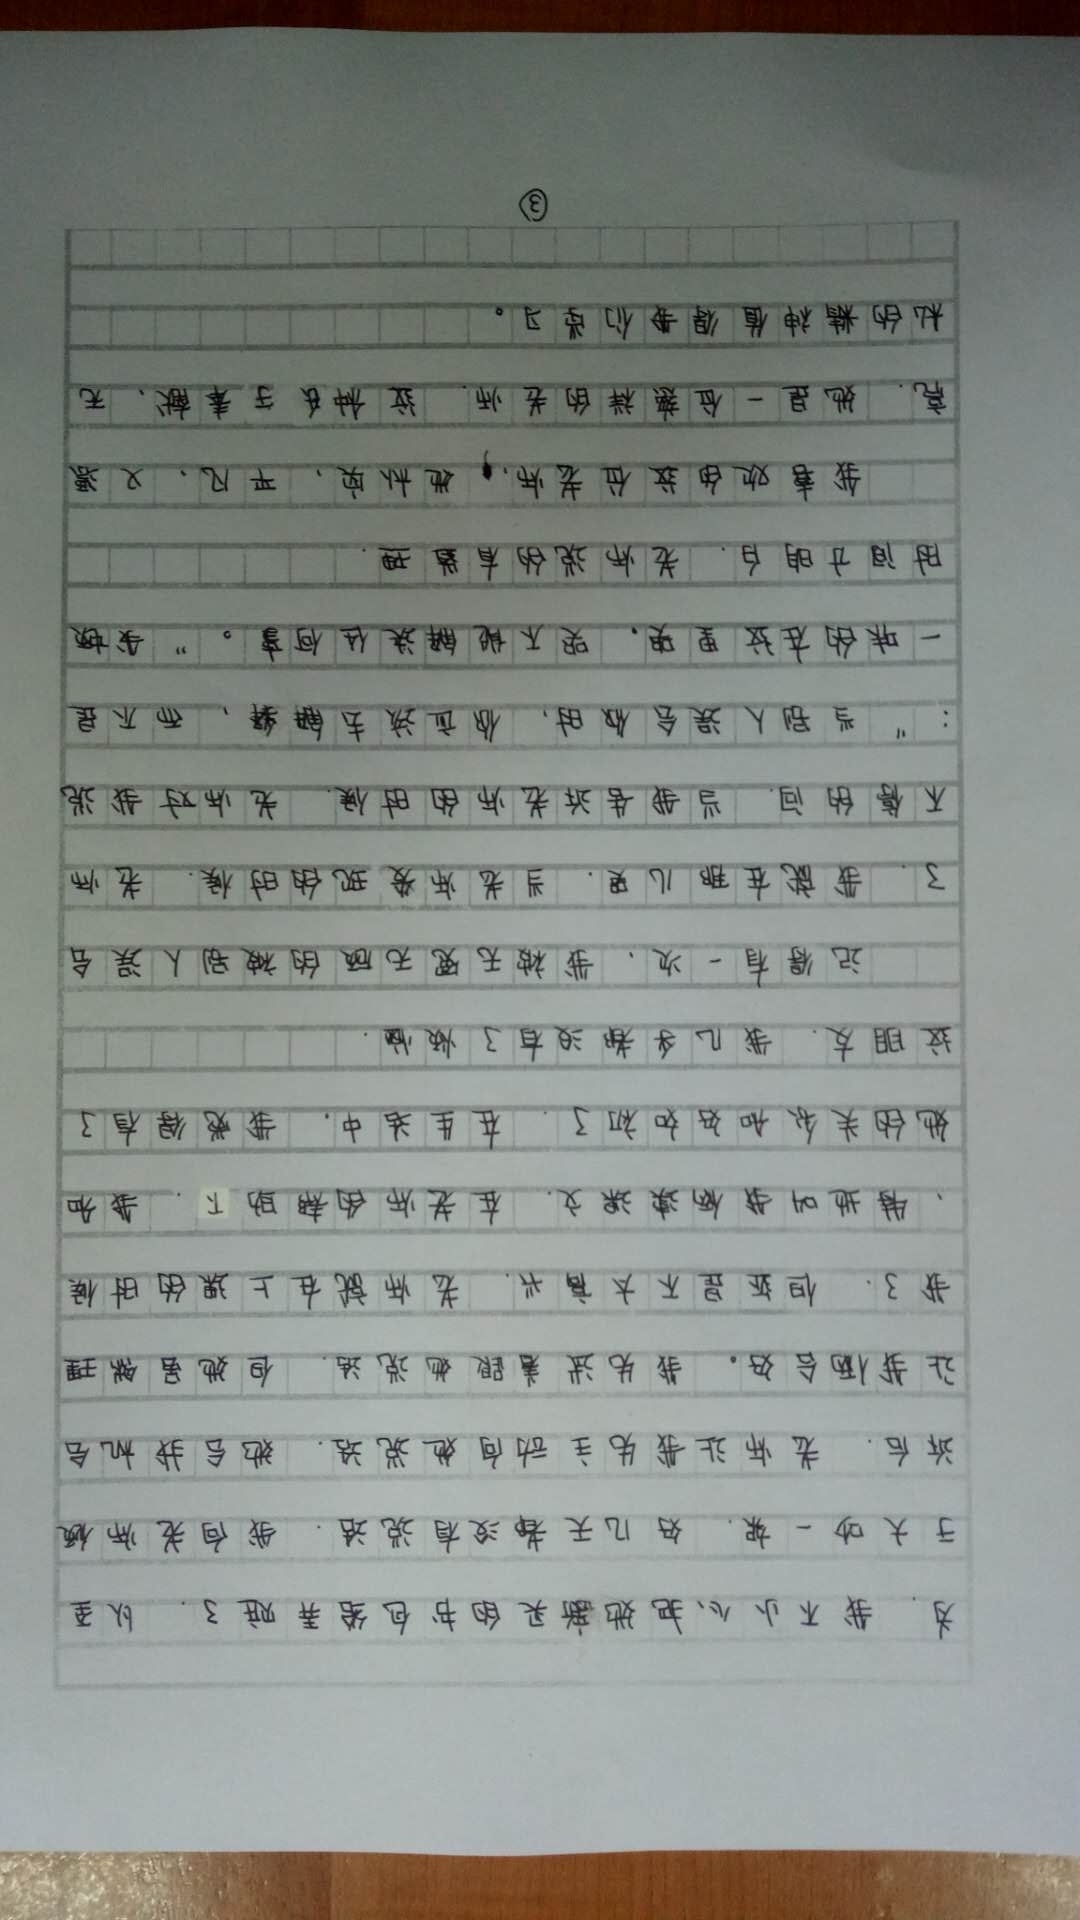 为.我不小心把她新买的书包给弄脏了.以至
于大吵一架.好几天都没有说话.我向老师倾
诉后.老师让我先主动向她说话.她会找机会
让我俩合好。我先试着跟她说话.但她虽然理
我了.但还是不太高兴.老师就在上课的时候
，特地叫我俩读课文.在老师的帮助下.我和
她的关系和好如初了.在生活中.我觉得有了
这朋友.我几乎都没有了烦恼.
记得有一次，我被无冤无顾的被别人误会
了.我就在那儿哭.当老师发现的时候.老师
不停的问.当我告诉老师的时候.老师对我说
：“当别人误会你时，你应该去解释，而不是
一味的在这里哭。哭不能解决任何事。”我顿
时间才明白.老师说的有道理.
我喜欢的这位老师，她朴实，平凡，又漂
亮.她是一位慈祥的老师.这种良于奉献，无
私的精神值得我们学习。
③